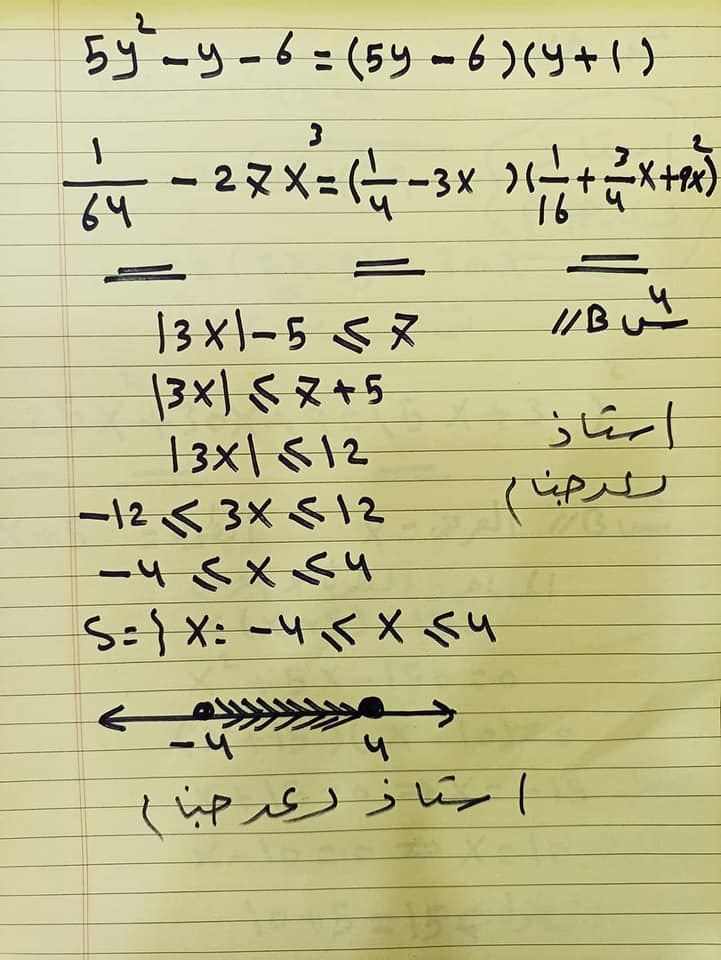 5y² - y - 6 = (5y - 6)(y + 1)
1/64 - 27x³ = (1/4 - 3x)(1/16 + 3/4 x + 9x²)
س4 B//
|3x| - 5 ≤ 7
|3x| ≤ 7 + 5
|3x| ≤ 12
-12 ≤ 3x ≤ 12
-4 ≤ x ≤ 4
S = } x: -4 ≤ x ≤ 4
استاذ
رعد حينام
-4 4
استاذ رعد حينام